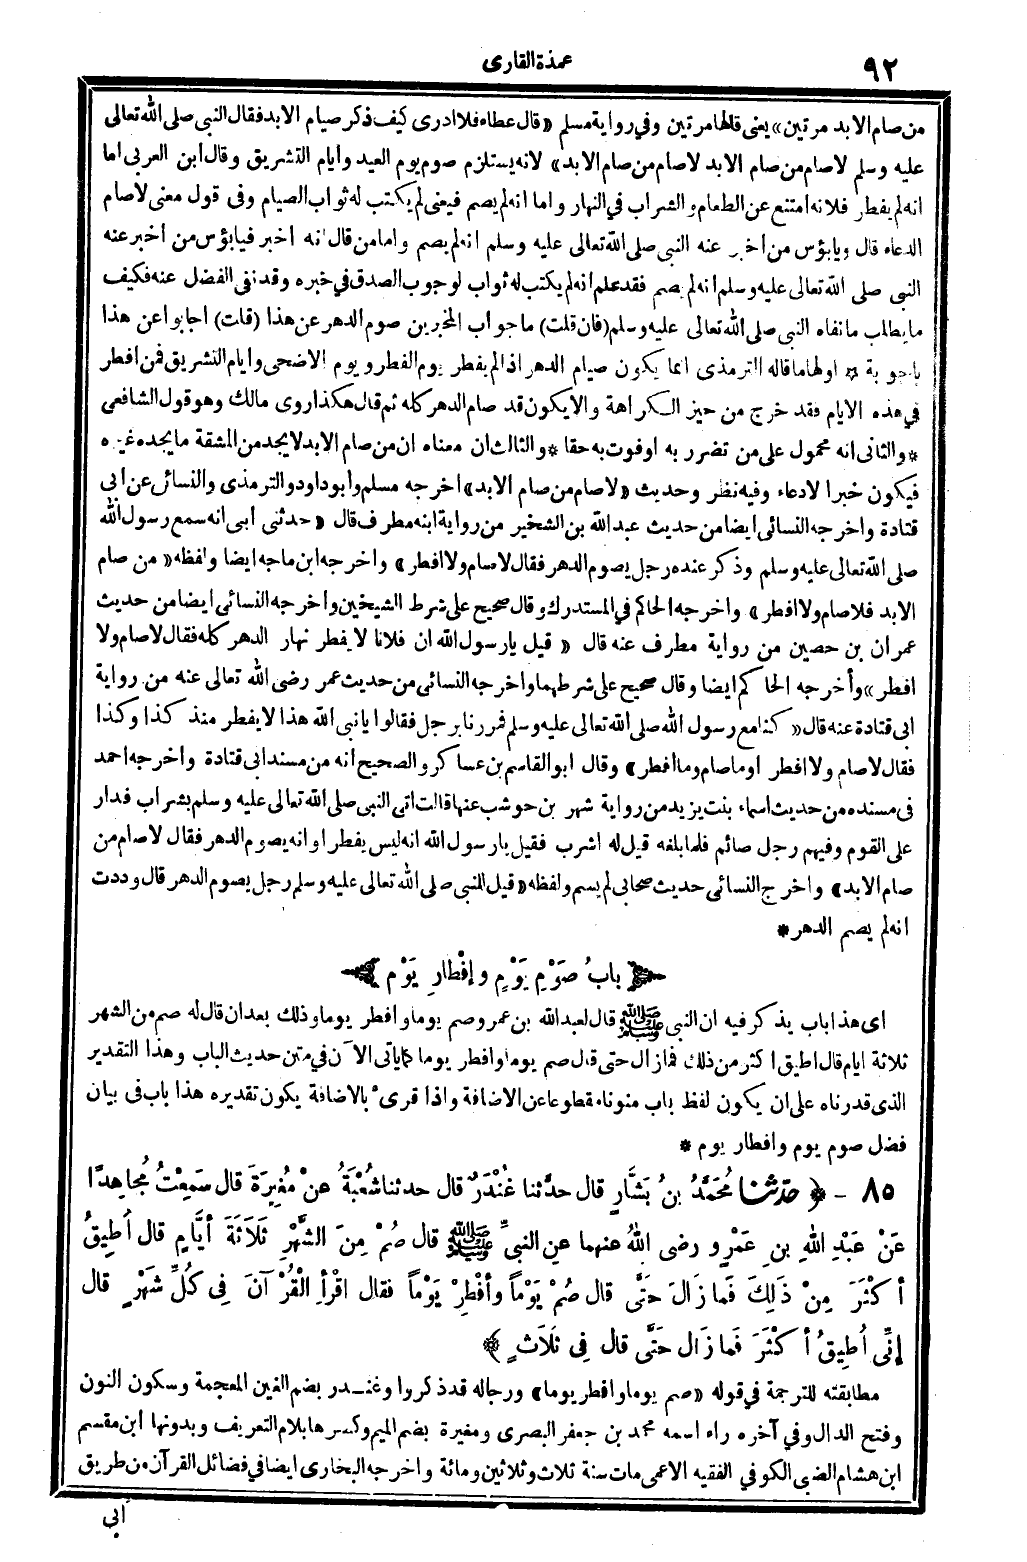 ٩٢
عمدة القارى
من صام الابد مرتين» يعنى قالها مرتين وفي رواية مسلم «قال عطاء فلا ادرى كيف ذكر صيام الابد فقال النبى صلى الله تعالى
عليه وسلم لا صام من صام الابد لا صام من صام الابد» لانه يستلزم صوم يوم العيد وايام التشريق وقال ابن العربى اما
انه لم يفطر فلانه امتنع عن الطعام والشراب في النهار واما انه لم يصم فيعنى لم يكتب له ثواب الصيام وفى قول معنى لا صام
الدعاء قال ويا بؤس من اخبر عنه النبى صلى الله تعالى عليه وسلم انه لم يصم واما من قال انه اخبر فيا بؤس من اخبر عنه
النبى صلى الله تعالى عليه وسلم انه لم يصم فقد علم انه لم يكتب له ثواب لوجوب الصدق في خبره وقد نفى الفضل عنه فكيف
ما يطلب ما نفاه النبى صلى الله تعالى عليه وسلم (فان قلت) ما جواب المخبرين صوم الدهر عن هذا (قلت) اجابوا عن هذا
باجوبة * اولها ما قاله الترمذى انما يكون صيام الدهر اذا لم يفطر يوم الفطر و يوم الاضحى وايام التشريق فمن افطر
في هذه الايام فقد خرج من حيز الكراهة والا يكون قد صام الدهر كله ثم قال هكذا روى مالك وهو قول الشافعى
* والثانى انه محمول على من تضرر به او فوت به حقا * والثالث ان معناه ان من صام الابد لا يجد من المشقة ما يجده غيره
فيكون خبرا لا دعاء وفيه نظر وحديث «لا صام من صام الابد» اخرجه مسلم وأبو داود والترمذى والنسائى عن ابى
قتادة واخرجه النسائى ايضا من حديث عبد الله بن الشخير من رواية ابنه مطرف قال «حدثنى ابى انه سمع رسول الله
صلى الله تعالى عليه وسلم وذكر عنده رجل يصوم الدهر فقال لا صام ولا افطر» واخرجه ابن ماجه ايضا ولفظه «من صام
الابد فلا صام ولا افطر» واخرجه الحاكم في المستدرك وقال صحيح على شرط الشيخين واخرجه النسائى ايضا من حديث
عمران بن حصين من رواية مطرف عنه قال «قيل يا رسول الله ان فلانا لا يفطر نهار الدهر كله فقال لا صام ولا
افطر» وأخرجه الحاكم ايضا وقال صحيح على شرطهما واخرجه النسائى من حديث عمر رضى الله تعالى عنه من رواية
ابى قتادة عنه قال «كنا مع رسول الله صلى الله تعالى عليه وسلم فمررنا برجل فقالوا يا نبى الله هذا لا يفطر منذ كذا وكذا
فقال لا صام ولا افطر او ما صام وما افطر» وقال ابو القاسم بن عساكر والصحيح انه من مسند ابى قتادة واخرجه احمد
فى مسنده من حديث اسماء بنت يزيد من رواية شهر بن حوشب عنها قالت اتى النبى صلى الله تعالى عليه وسلم بشراب فدار
على القوم وفيهم رجل صائم فلما بلغه قيل له اشرب فقيل يا رسول الله انه ليس يفطر او انه يصوم الدهر فقال لا صام من
صام الابد» واخرج النسائى حديث صحابى لم يسم ولفظه «قيل للنبى صلى الله تعالى عليه وسلم رجل يصوم الدهر قال وددت
انه لم يصم الدهر *
﴿ بابُ صَوْمِ يَوْمٍ وإفْطارِ يَوْمٍ ﴾
اى هذا باب يذكر فيه ان النبى ﷺ قال لعبد الله بن عمر وصم يوما وافطر يوما وذلك بعد ان قال له صم من الشهر
ثلاثة ايام قال اطيق اكثر من ذلك فما زال حتى قال صم يوما وافطر يوما كما ياتى الآن في متن حديث الباب وهذا التقدير
الذى قدرناه على ان يكون لفظ باب منونا مقطوعا عن الاضافة واذا قرىء بالاضافة يكون تقديره هذا باب فى بيان
فضل صوم يوم وافطار يوم *
٨٥ - ﴿ حدّثنا مُحَمَّدُ بنُ بَشَّارٍ قال حدّثنا غُنْدَرٌ قال حدثنا شُعْبَةُ عنْ مُغِيرَةَ قال سَمِعْتُ مُجاهِدًا
عَنْ عَبْدِ اللهِ بنِ عَمْرٍو رضى اللهُ عنهما عنِ النبىِّ ﷺ قال صُمْ مِنَ الشَّهْرِ ثَلاَثَةَ أيَّامٍ قال أُطِيقُ
أكْثَرَ مِنْ ذَلِكَ فَما زَالَ حَتَّى قال صُمْ يَوْماً وأفْطِرْ يَوْماً فقال اقْرَأِ الْقُرْآنَ فِى كُلِّ شَهْرٍ قال
إنِّى أُطِيقُ أكْثَرَ فَما زَالَ حَتَّى قال فِى ثَلاَثٍ ﴾
مطابقته للترجمة في قوله «صم يوما وافطر يوما» ورجاله قد ذكروا وغندر بضم الغين المعجمة وسكون النون
وفتح الدال وفي آخره راء اسمه محمد بن جعفر البصرى ومغيرة بضم الميم وكسرها بلام التعريف وبدونها ابن مقسم
ابن هشام الضبى الكوفى الفقيه الاعمى مات سنة ثلاث وثلاثين ومائة واخرجه البخارى ايضا في فضائل القرآن من طريق
أبى